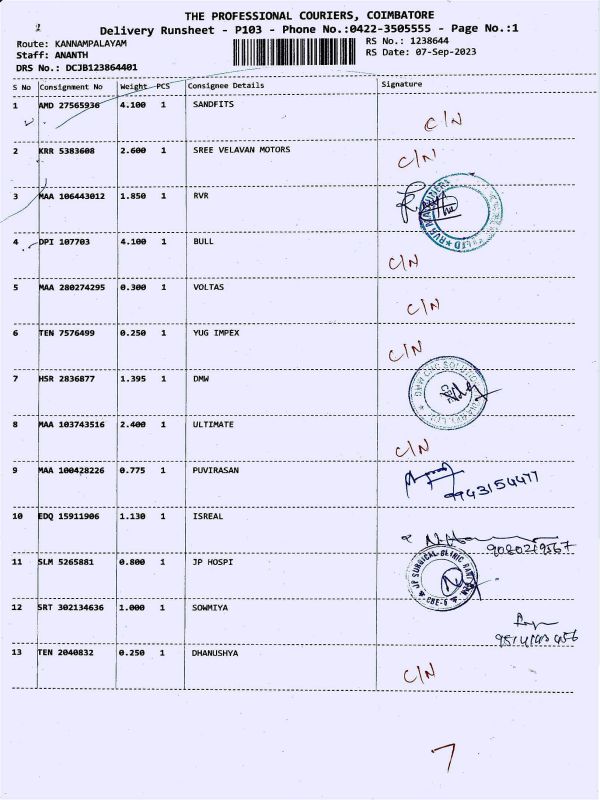 THE PROFESSIONAL COURIERS, COIMBATORE
Delivery Runsheet - P103 - Phone No.:0422-3505555 - Page No.:1
Route: KANNAMPALAYAM RS No.: 1238644
Staff: ANANTH RS Date: 07-Sep-2023
DRS No.: DCJB123864401
S No Consignment No Weight PCS Consignee Details Signature
1 AMD 27565936 4.100 1 SANDFITS C/N
2 KRR 5383608 2.600 1 SREE VELAVAN MOTORS C/N
3 MAA 106443012 1.850 1 RVR
4 DPI 107703 4.100 1 BULL C/N
5 MAA 280274295 0.300 1 VOLTAS C/N
6 TEN 7576499 0.250 1 YUG IMPEX C/N
7 HSR 2836877 1.395 1 DMW
DMW CNC
8 MAA 103743516 2.400 1 ULTIMATE C/N
9 MAA 100428226 0.775 1 PUVIRASAN
9943154477
10 EDQ 15911906 1.130 1 ISREAL
9080219567
11 SLM 5265881 0.800 1 JP HOSPI
JP SURGICAL CLINIC
CBE-6
12 SRT 302134636 1.000 1 SOWMIYA
13 TEN 2040832 0.250 1 DHANUSHYA C/N
7